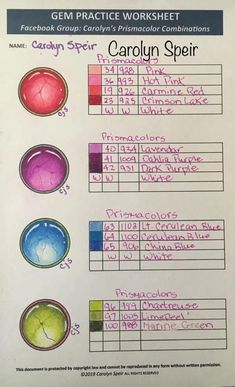 GEM PRACTICE WORKSHEET
Facebook Group: Carolyn's Prismacolor Combinations
NAME: Carolyn Speir Carolyn Speir
Prismacolors
54 928 Pink
36 993 Hot Pink
19 926 Carmine Red
23 925 Crimson Lake
W W White
cjs
Prismacolors
40 934 Lavendar
41 1009 Dahlia Purple
42 931 Dark Purple
W W White
cjs
Prismacolors
63 1103 Lt. Cerulean Blue
64 1100 Cerulean Blue
65 906 China Blue
W W White
cjs
Prismacolors
96 989 Chartreuse
97 1005 Lime Peel
100 988 Marine Green
cjs
This document is protected by copyright law and cannot be reproduced in any form without written permission.
©2019 Carolyn Speir ALL RIGHTS RESERVED